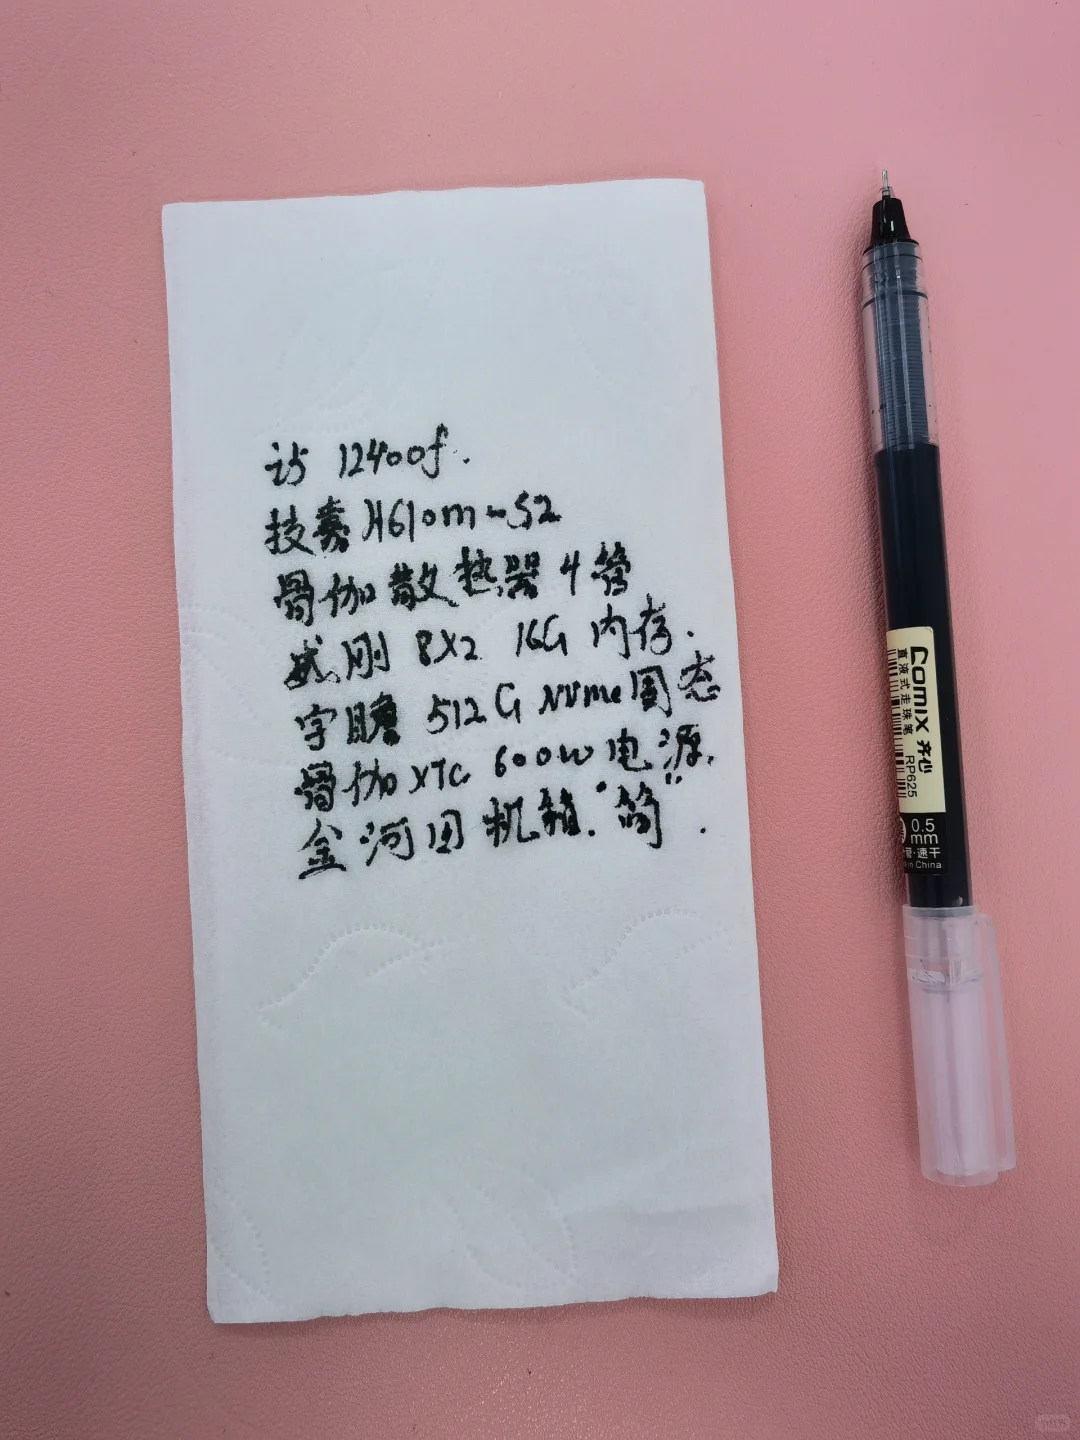 i5 12400f.
技嘉H610m-S2
骨伽散热器 4管
威刚 8X2 16G 内存.
字瞻 512G NVme固态
骨伽XTC 600W 电源.
金河田 机箱.
comix 齐心
直液式走珠笔 RP625
0.5
mm
速干
in China
小红书